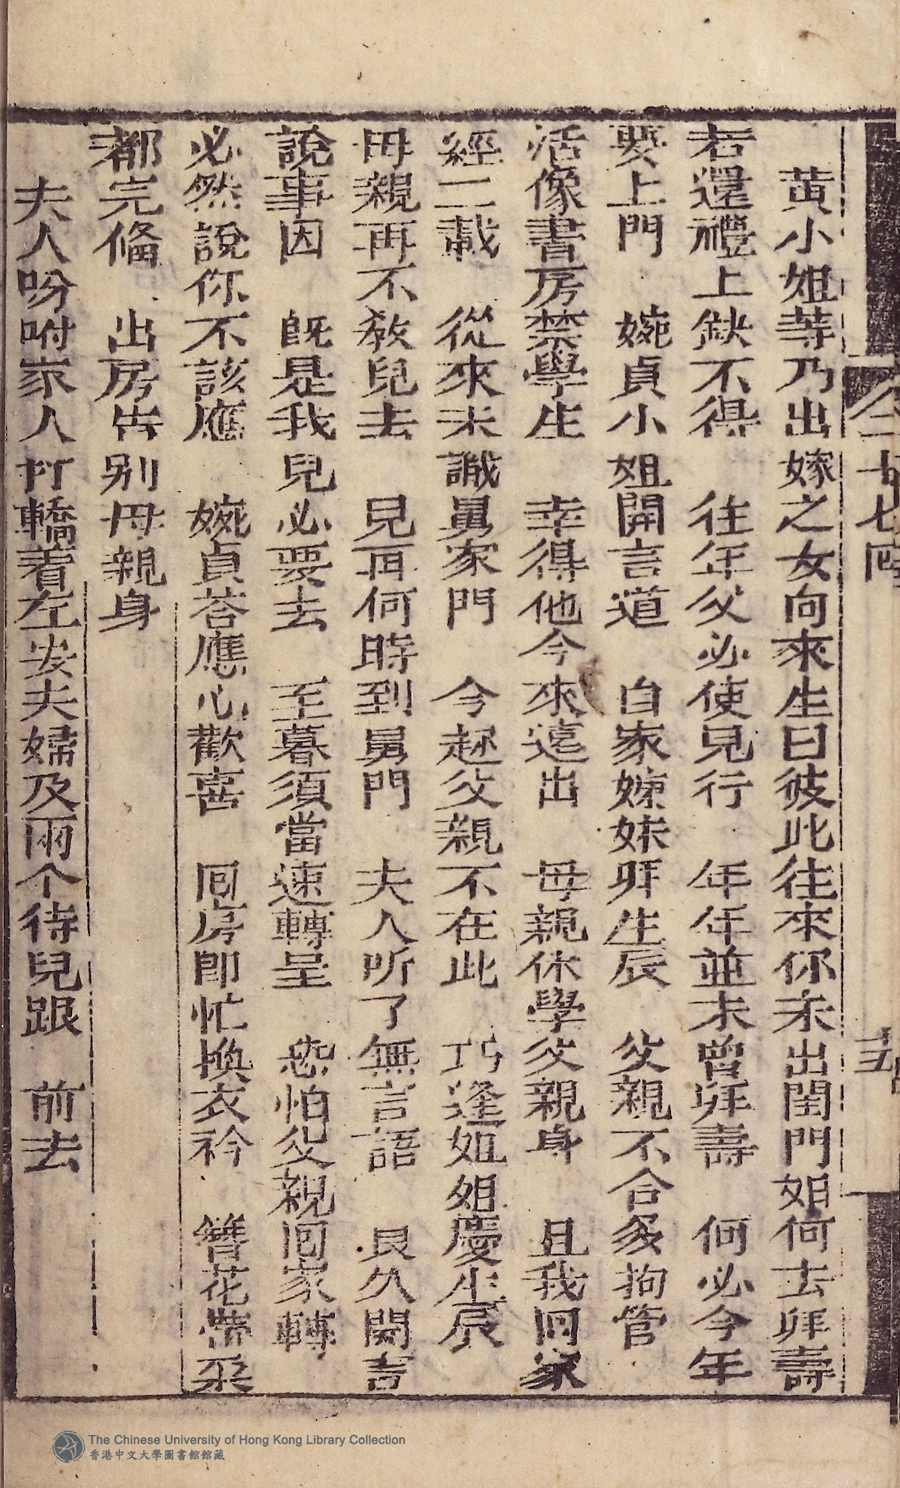 黄小姐等乃出嫁之女向來生日彼此往來你未出閨門如何去拜壽
若還禮上缺不得　往年父必使兒行　年年並未曾拜壽　何必今年
要上門　婉貞小姐開言道　自家姊妹拜生辰　父親不合多拘管
活像書房禁學生　幸得他今來遠出　母親休學父親身　且我回家
經二載　從來未識舅家門　今趂父親不在此　巧逢姐姐慶生辰
母親再不教兒去　兒再何時到舅門　夫人听了無言語　良久開言
說事因　既是我兒必要去　至暮須當速轉呈　恐怕父親囘家轉
必然說你不該應　婉貞荅應心歡喜　囘房即忙換衣衿　簪花帶朶
都完俻　出房告别母親身
夫人吩咐家人打轎着左安夫婦及兩个待兒跟　前去
二十七囘
十五
The Chinese University of Hong Kong Library Collection
香港中文大學圖書館館藏